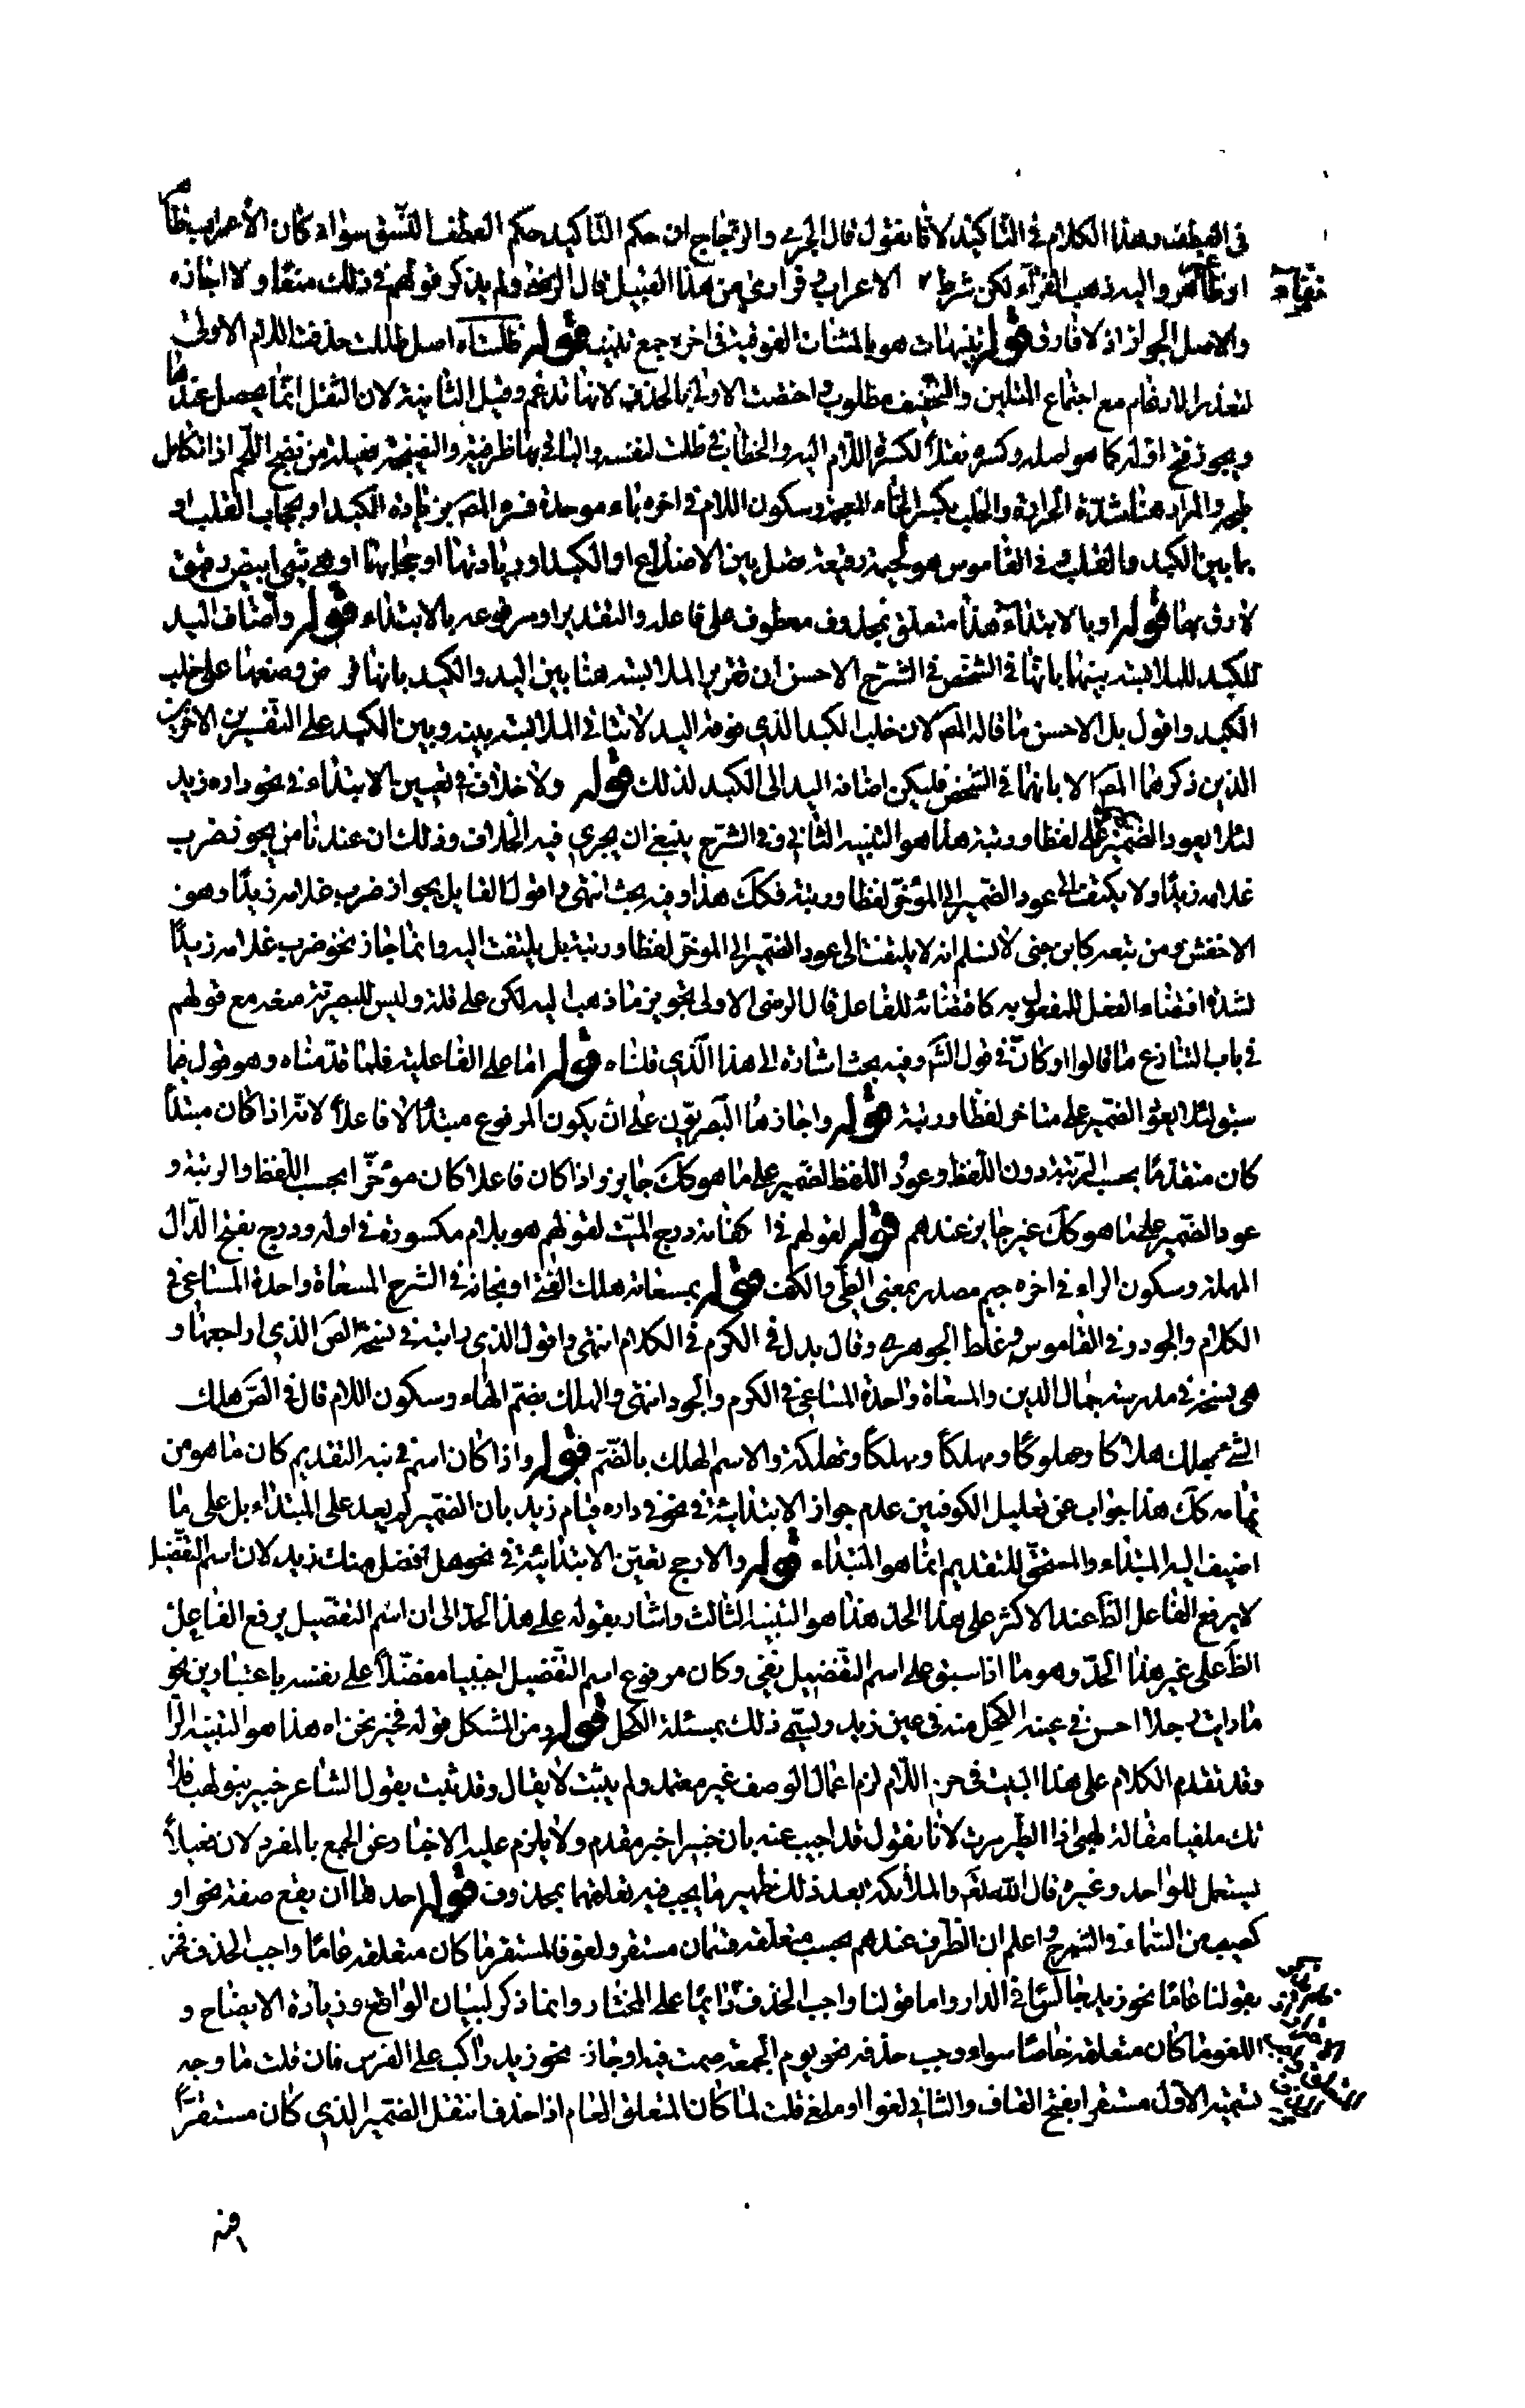 في العطف وهذا الكلام في التاكيد لانا نقول قال الجرمي والزجاج ان حكم التاكيد حكم العطف النسق سواء كان الاعراب
او واليه ذهب الفراء لكن شرط الاعراب من هذا القبيل قال الرضى ولم يذكر في ذلك منعا ولا اجازه
والاصل الجواز اذ لا فارق قوله تنبيهات هو بالمثنات الفوقية في اخره جمع تنبيه قوله ظلت اصله ظللت حذفت اللام الاولى
لتعذر الادغام مع اجتماع المثلين والتخفيف مطلوب واختصت الاولى بالحذف لانها تدغم وقيل الثانية لان الثقل انما يحصل عندها
ويجوز فتح اوله كما هو اصله وكسره نقلا لكسرة اللام اليه والخطاب في ظلت لنفسه والبا في بها ظرفية من نضج اللحم اذا تكامل
طبخه والمراد هنا شدة الحرارة والخلب بكسر الخاء المعجمة وسكون اللام في اخره باء موحدة فسره المص بزيادة الكبد او حجاب القلب او
ما بين الكبد والقلب في القاموس هو لحيمة رقيقة تصل بين الاضلاع او الكبد او زيادتها او حجابها او شيء ابيض رقيق
لازق بها قوله او بالابتداء هذا متعلق بمحذوف معطوف على فاعله والتقدير او مرفوعه بالابتداء قوله واضاف اليد
للكبد للملابسة بينهما بانهما في الشخص في الشرح الاحسن ان تقرير الملابسة هنا بين اليد والكبد بانها وضعها على خلب
الكبد واقول بل الاحسن ما قاله المص لان خلب الكبد الذي فوقه اليد لا تتاتى الملابسة بينه وبين الكبد على التفسيرين الاخيرين
الذين ذكرهما المص الا بانهما في الشخص فليكن اضافة اليد الى الكبد لذلك قوله ولا خلاف في تعيين الابتداء في نحو داره زيد
لئلا يعود الضمير على لفظا ورتبة هذا هو التنبيه الثاني وفي الشرح ينبغي ان يجري فيه الخلاف وذلك ان عندنا من يجوز ضرب
غلامه زيدا ولا يلتفت الى عود الضمير الى المؤخر لفظا ورتبة فكك هذا وفيه بحث انتهى واقول القايل بجواز ضرب غلامه زيدا وهو
الاخفش ومن تبعه كابن جنى لا نسلم انه لا يلتفت الى عود الضمير الى الموخر لفظا ورتبة بل يلتفت اليه وانما جاز نحو ضرب غلامه زيدا
لشدة اقتضاء الفعل للمفعول به كاقتضائه للفاعل قال الرضى الاولى تجويز ما ذهبا اليه لكن على قلة وليس للبصرية منعه مع قولهم
في باب التنازع ما قالوا وكان في قول الش وفيه بحث اشارة الى هذا الذي قلناه قوله اما على الفاعلية فلما قدمناه وهو قول فيما
سبق لئلا يعود الضمير على متاخر لفظا ورتبة قوله واجازها البصريون على ان يكون المرفوع مبتدا لا فاعلا لانه اذا كان مبتدا
كان متقدما بحسب الرتبة دون اللفظ وعود الضمير على ما هو كك جايز واذا كان فاعلا كان مؤخرا بحسب اللفظ والرتبة و
عود الضمير على ما هو كك غير جايز عندهم قوله لقولهم في اكفانه درج الميت لقولهم هو بلام مكسورة في اوله ودرج بفتح الدال
المهملة وسكون الراء في اخره جيم مصدر بمعنى الطي والكف قوله بمسعاته هلك الفتى او نجاته في الشرح المسعاة واحدة المساعي في
الكلام والجود وفي القاموس وغلط الجوهري وقال بدل في الكرم في الكلام انتهى واقول الذي رايته في نسخة الص الذي اراجعها و
هي بنسخة في مدرسة جمال الدين والمسعاة واحدة المساعي في الكرم والجود انتهى والهلك بضم الهاء وسكون اللام قال في الص هلك
الشيء يهلك هلاكا وهلوكا ومهلكا ومهلكا وتهلكة والاسم الهلك بالضم قوله واذا كان اسم في نية التقديم كان ما هو من
تمامه كك هذا جواب عن تعليل الكوفيين عدم جواز الابتدائية في نحو في داره قيام زيد بان الضمير لم يعد على المبتداء بل على ما
اضيف اليه المبتداء والمستحق للتقديم انما هو المبتداء قوله والارجح تعين الابتدائية في نحو هل افضل منك زيد لان اسم التفضيل
لا يرفع الفاعل الظ عند الاكثر على هذا الحد هذا هو التنبيه الثالث واشار بقوله على هذا الحد الى ان اسم التفضيل يرفع الفاعل
الظ على غير هذا الحد وهو ما اذا سبق على اسم التفضيل نفي وكان مرفوع اسم التفضيل اجنبيا مفضلا على نفسه باعتبارين نحو
ما رايت رجلا احسن في عينه الكحل منه في عين زيد وليسمى ذلك بمسئلة الكحل قوله ومن المشكل قوله فخير نحن اه هذا هو التنبيه الرا
وقد تقدم الكلام على هذا البيت في حرف اللام لزم اعمال الوصف غير معتمد ولم يثبت لا يقال وقد ثبت بقول الشاعر خبير بنو لهب فلا
تك ملغيا مقالة لهبي اذا الطير مرت لانا نقول قد اجيب عنه بان خبيرا خبر مقدم ولا يلزم عليه الاخبار عن الجمع بالمفرد لان فعيلا
يستعمل للواحد وغيره قال الله تعم والملائكة بعد ذلك ظهير ما يجب فيه تعلقهما بمحذوف قوله احدها ان يقع صفة نحو او
كصيب من السماء في الشرح واعلم ان الظرف عندهم بحسب متعلقه قسمان مستقر ولغو فالمستقر ما كان متعلقه عاما واجب الحذف فخرج
بقولنا عاما نحو زيد جالس في الدار واما قولنا واجب الحذف على المختار وانما ذكر لبيان الواقع وزيادة الايضاح و
اللغو ما كان متعلقه خاصا سواء وجب حذفه نحو يوم الجمعة صمت فيه او جاز نحو زيد راكب على الفرس فان قلت ما وجه
تسمية الاول مستقرا بفتح القاف والثاني لغوا او ملغى قلت لما كان المتعلق العام اذا حذف انتقل الضمير الذي كان مستقرا
فيه